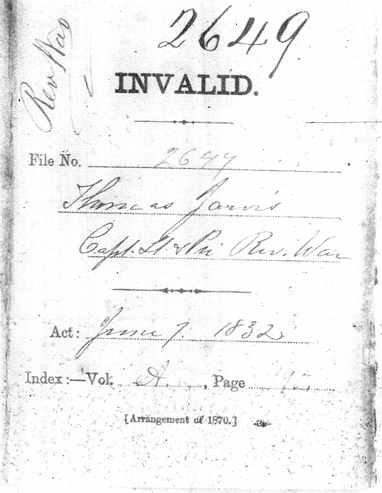 Rev War
2649
INVALID.
File No. 2649
Thomas Jarvis
Capt. Lt & Pri Rev. War
Act: June 7. 1832
Index:—Vol. A. , Page
[Arrangement of 1870.]